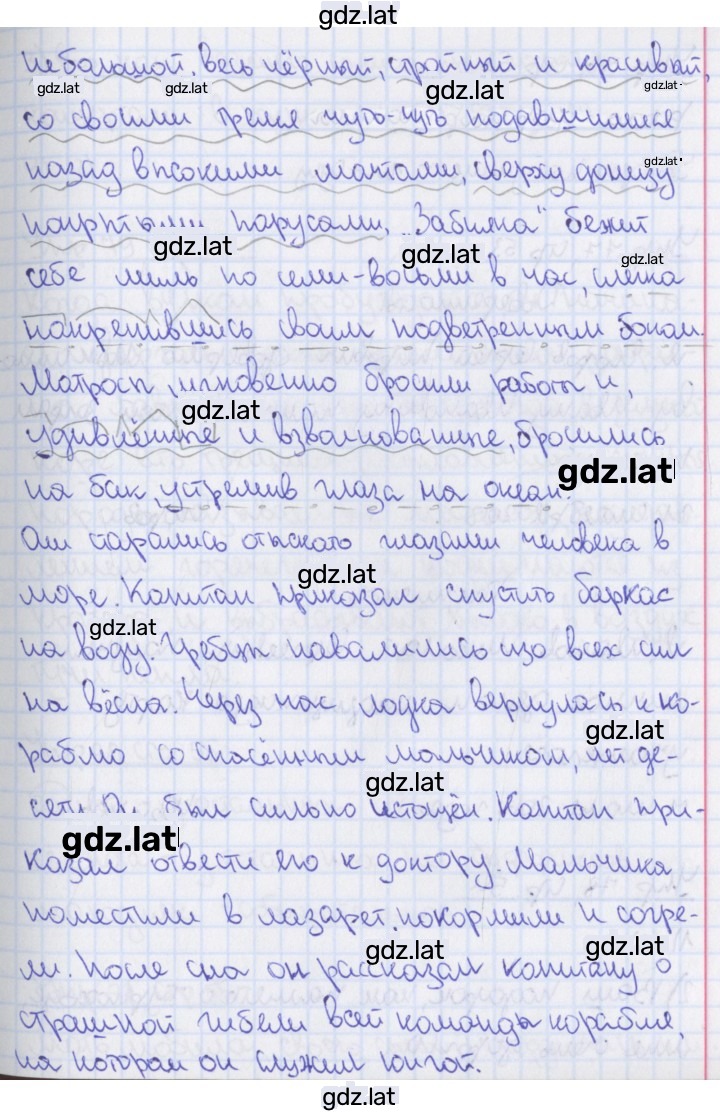 gdz.lat
небольшой, весь чёрный, стройный и красивый,
gdz.lat gdz.lat gdz.lat gdz.lat
со своими тремя чуть-чуть подавшимися
назад высокими мачтами, сверху донизу
gdz.lat
покрытый парусами, „Забияка“ бежит
gdz.lat gdz.lat gdz.lat
себе миль по семи-восьми в час, слегка
накренившись своим подветренным боком.
Матросы мгновенно бросили работы и,
gdz.lat
удивлённые и взволнованные, бросились
gdz.lat
на бак, устремив глаза на океан.
Они старались отыскать глазами человека в
gdz.lat
море. Капитан приказал спустить баркас
gdz.lat
на воду. Гребцы навалились изо всех сил
на вёсла. Через час лодка вернулась к ко-
gdz.lat
раблю со спасённым мальчиком, лет де-
gdz.lat
сяти. Был сильно истощён. Капитан при-
gdz.lat
казал отвести его к доктору. Мальчика
поместили в лазарет, покормили и согре-
gdz.lat gdz.lat
ли. После сна он рассказал капитану о
страшной гибели всей команды корабля,
на котором он служил юнгой.
gdz.lat